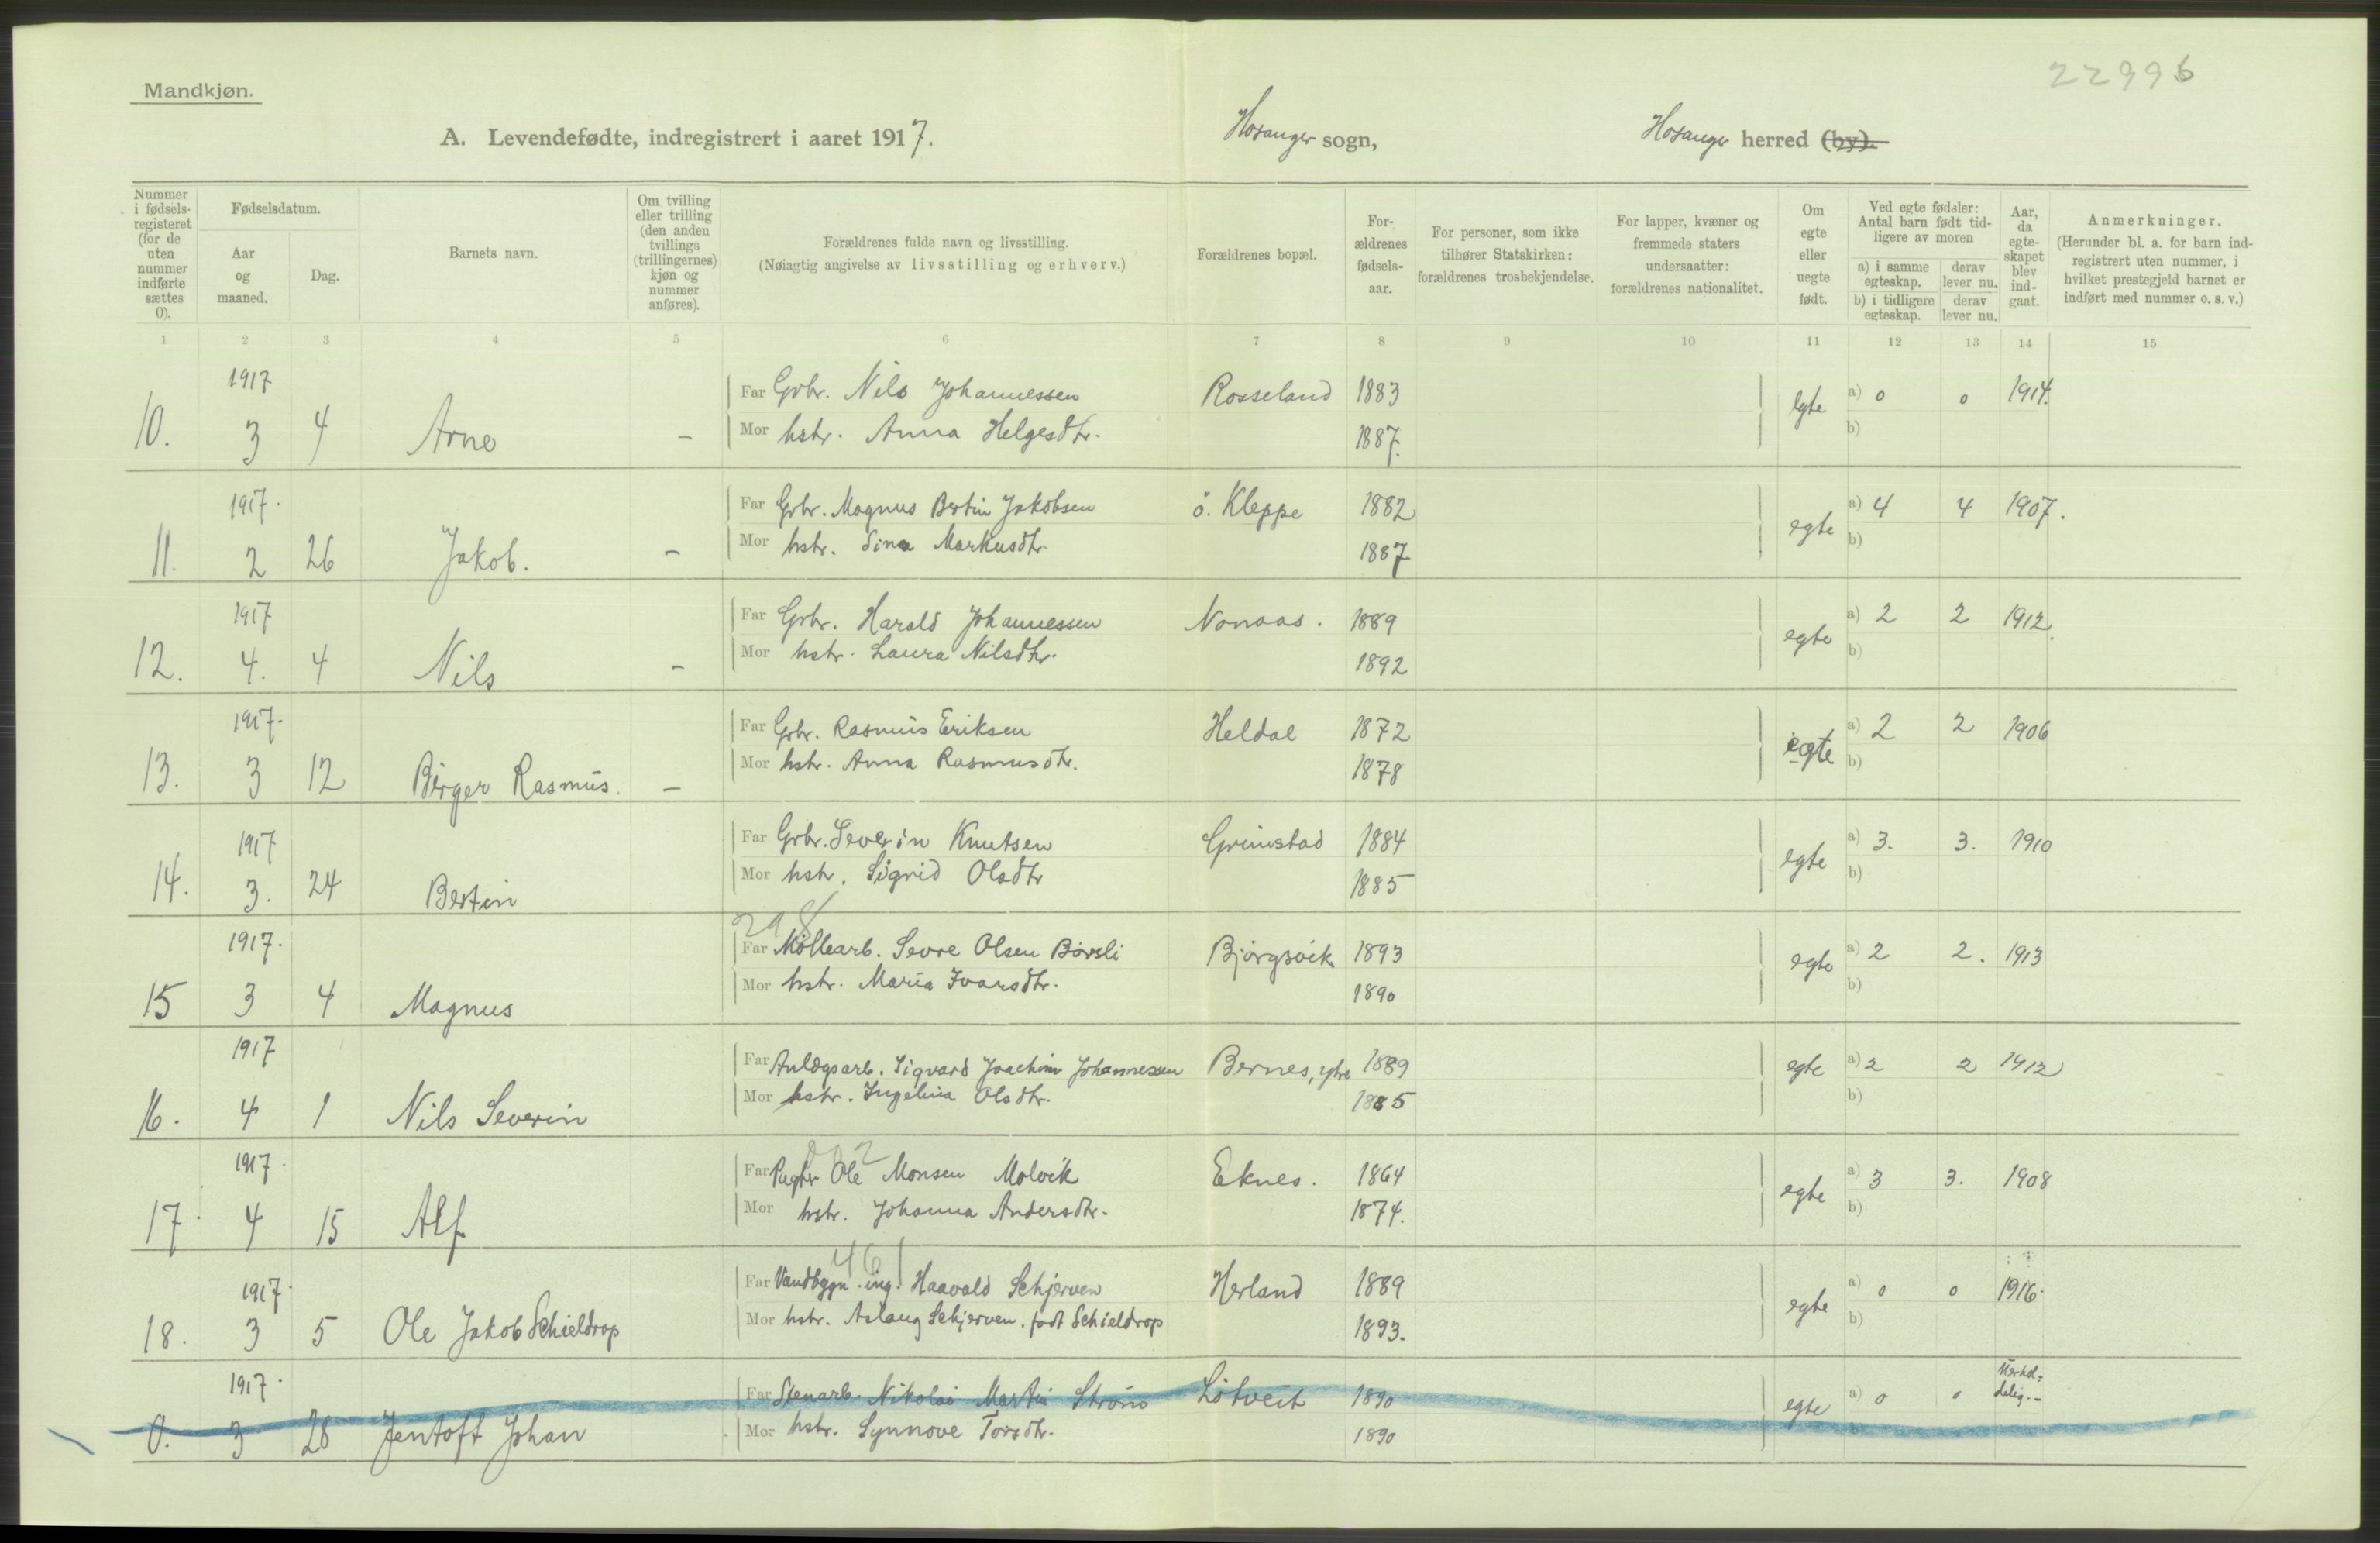 22996
Mandkjøn.
A. Levendefødte, indregistrert i aaret 1917. Hosanger sogn, Hosanger herred (by).
Nummer i fødsels-registeret (for de uten nummer indførte sættes 0).
Fødselsdatum.
Aar og maaned.
Dag.
Barnets navn.
Om tvilling eller trilling (den anden tvillings (trillingernes) kjøn og nummer anføres).
Forældrenes fulde navn og livsstilling.
(Nøiagtig angivelse av livsstilling og erhverv.)
Forældrenes bopæl.
For-ældrenes fødsels-aar.
For personer, som ikke tilhører Statskirken: forældrenes trosbekjendelse.
For lapper, kvæner og fremmede staters undersaatter: forældrenes nationalitet.
Om egte eller uegte født.
Ved egte fødsler: Antal barn født tid-ligere av moren
a) i samme egteskap. derav lever nu.
b) i tidligere egteskap. derav lever nu.
Aar, da egte-skapet blev ind-gaat.
Anmerkninger.
(Herunder bl. a. for barn ind-registrert uten nummer, i hvilket prestegjeld barnet er indført med nummer o. s. v.)
1 2 3 4 5 6 7 8 9 10 11 12 13 14 15
1917 Far Grbr. Nils Johannessen Rosseland 1883 egte a) 0 0 1914.
10. 3 4 Arne - Mor hstr. Anna Helgesdtr. 1887. b)
1917. Far Grbr. Magnus Bertin Jakobsen ö. Kleppe 1882 egte a) 4 4 1907.
11. 2 26 Jakob. - Mor hstr. Sina Markusdtr. 1887 b)
1917 Far Grbr. Harald Johannessen Nonaas. 1889 egte a) 2 2 1912.
12. 4. 4 Nils - Mor hstr. Laura Nilsdtr. 1892 b)
1917. Far Grbr. Rasmus Eriksen Heldal 1872 egte a) 2 2 1906
13. 3 12 Birger Rasmus. - Mor hstr. Anna Rasmusdtr. 1878 b)
1917 Far Grbr. Severin Knutsen Grimstad 1884 egte a) 3. 3. 1910
14. 3. 24 Bertin Mor hstr. Sigrid Olsdtr 1885 b)
298
1917. Far Møllearb. Sevre Olsen Børsli Bjørgsvik 1893 egte a) 2 2. 1913
15 3 4 Magnus Mor hstr. Maria Ivarsdtr. 1890 b)
1917 Far Anlægsarb. Sigvard Joachim Johannessen Bernes, ytre 1889 egte a) 2 2 1912
16. 4 1 Nils Severin Mor hstr. Ingelina Olsdtr. 1885 b)
1917. Far Pagter Ole Monsen Molvik Eknes. 1864 egte a) 3 3. 1908
17. 4 15 Alf Mor hstr. Johanna Andersdtr. 1874. b)
461
1917. Far Vandbygn.-ing. Haavald Schjerven Herland 1889 egte a) 0 0 1916.
18. 3 5 Ole Jakob Schieldrop Mor hstr. Aslaug Schjerven, født Schieldrop 1893. b)
1917. Far Stenarb. Nikolai Martin Strøm Løtveit 1890 egte a) 0 0
0. 3 28 Jentoft Johan Mor hstr. Synnove Torsdtr. 1890 b)